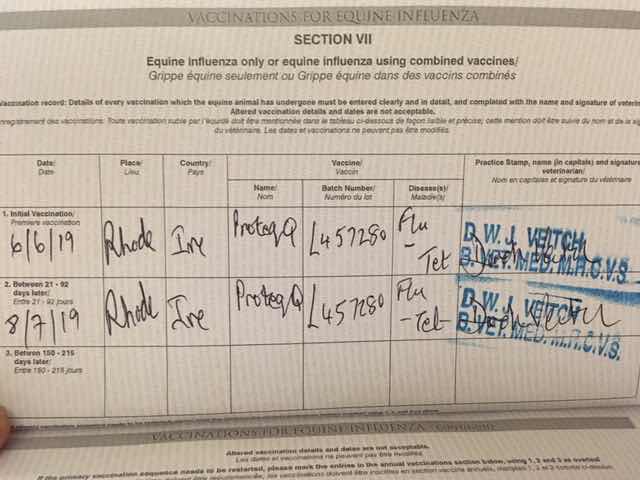 VACCINATIONS FOR EQUINE INFLUENZA
SECTION VII
Equine influenza only or equine influenza using combined vaccines/
Grippe équine seulement ou Grippe équine dans des vaccins combinés
Vaccination record: Details of every vaccination which the equine animal has undergone must be entered clearly and in detail, and completed with the name and signature of veterinarian.
Altered vaccination details and dates are not acceptable.
enregistrement des vaccinations: Toute vaccination subie par l'équidé doit être mentionnée dans le tableau ci-dessous de façon lisible et précise; cette mention doit être suivie du nom et de la
du vétérinaire. Les dates et vaccinations ne peuvent pas être modifiés.
Date/ Place/ Country/ Vaccine/ Practice Stamp, name (in capitals) and signature
Date Lieu Pays Vaccin veterinarian/
Nom en capitales et signature du vétérinaire
Name/ Batch Number/ Disease(s)/
Nom Numéro du lot Maladie(s)
1. Initial Vaccination/
Première vaccination
6/6/19 Rhode Ire ProteqQ L457280 Flu - Tet
D. W. J. VELTCH
B. VET. MED. M.R.C.V.S.
2. Between 21 - 92
days later/
Entre 21 - 92 jours
8/7/19 Rhode Ire ProteqQ L457280 Flu - Tet
D. W. J. VELTCH
B. VET. MED. M.R.C.V.S.
3. Betwen 150 - 215
days later/
Entre 150 - 215 jours
VACCINATIONS FOR EQUINE INFLUENZA
Altered vaccination details and dates are not acceptable.
Les dates et vaccinations ne peuvent pas être modifiés.
If the primary vaccination sequence needs to be restarted, please mark the entries in the annual vaccinations section below, using 1, 2 and 3 as overleaf.